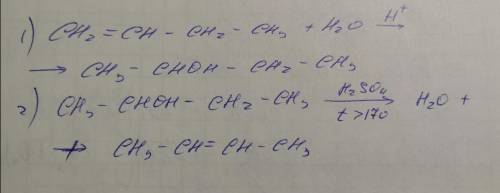 1) CH₂=CH - CH₂ - CH₃ + H₂O H⁺→
→ CH₃ - CHOH - CH₂ - CH₃
2) CH₃ - CHOH - CH₂ - CH₃ H₂SO₄ t>170 → H₂O +
+ CH₃ - CH=CH - CH₃